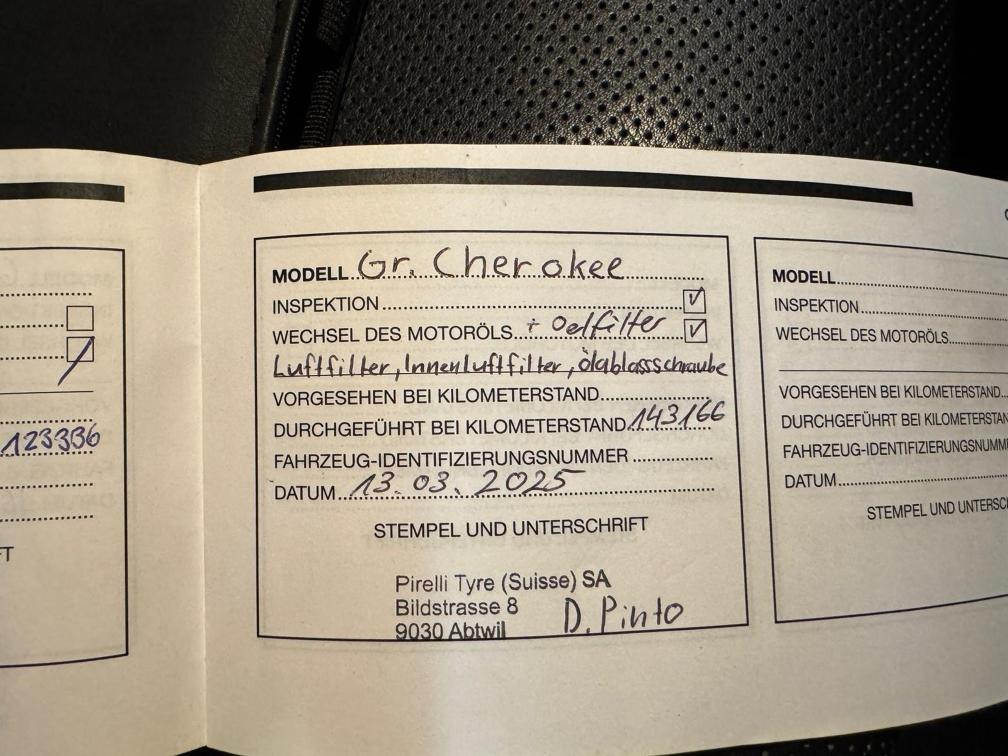 123336
MODELL Gr. Cherokee
INSPEKTION
WECHSEL DES MOTORÖLS. + Oelfilter
Luftfilter, Innenluftfilter, ölablassschraube
VORGESEHEN BEI KILOMETERSTAND
DURCHGEFÜHRT BEI KILOMETERSTAND 143166
FAHRZEUG-IDENTIFIZIERUNGSNUMMER
DATUM 13.03.2025
STEMPEL UND UNTERSCHRIFT
Pirelli Tyre (Suisse) SA
Bildstrasse 8 D. Pinto
9030 Abtwil
MODELL
INSPEKTION
WECHSEL DES MOTORÖLS
VORGESEHEN BEI KILOMETERSTAND
DURCHGEFÜHRT BEI KILOMETERSTAN
FAHRZEUG-IDENTIFIZIERUNGSNUMM
DATUM
STEMPEL UND UNTERSC